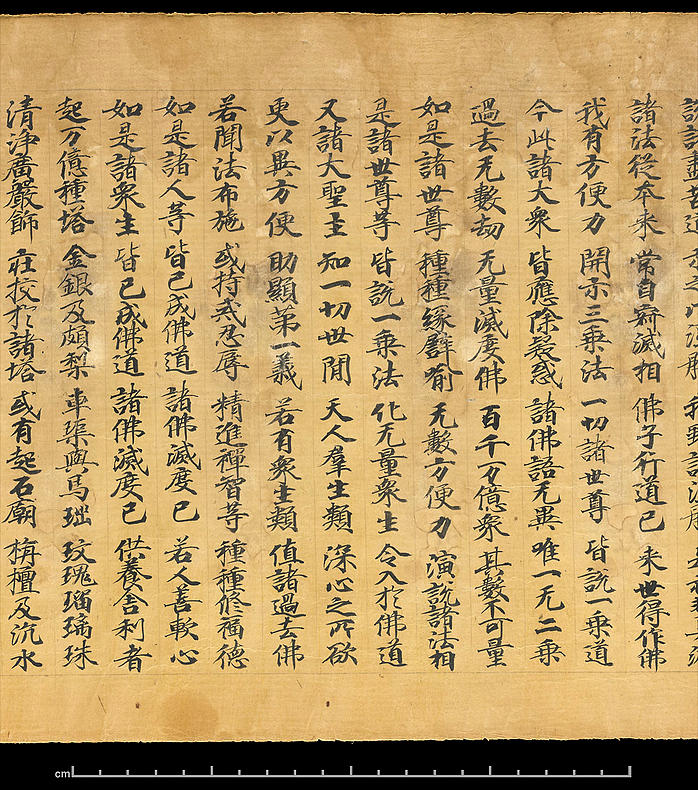 諸法從本来 常自寂滅相 佛子行道已 来世得作佛
我有方便力 開示三乗法 一切諸世尊 皆說一乗道
今此諸大衆 皆應除疑惑 諸佛語无異 唯一无二乗
過去无數劫 无量滅度佛 百千万億衆 其數不可量
如是諸世尊 種種縁譬喻 无數方便力 演說諸法相
是諸世尊等 皆說一乗法 化无量衆生 令入於佛道
又諸大聖主 知一切世間 天人羣生類 深心之所欲
更以異方便 助顯第一義 若有衆生類 值諸過去佛
若聞法布施 或持戒忍辱 精進禪智等 種種修福德
如是諸人等 皆已成佛道 諸佛滅度已 若人善軟心
如是諸衆生 皆已成佛道 諸佛滅度已 供養舍利者
起万億種塔 金銀及頗梨 車渠與馬瑙 玫瑰瑠璃珠
清淨廣嚴飾 莊挍於諸塔 或有起石廟 栴檀及沉水
cm